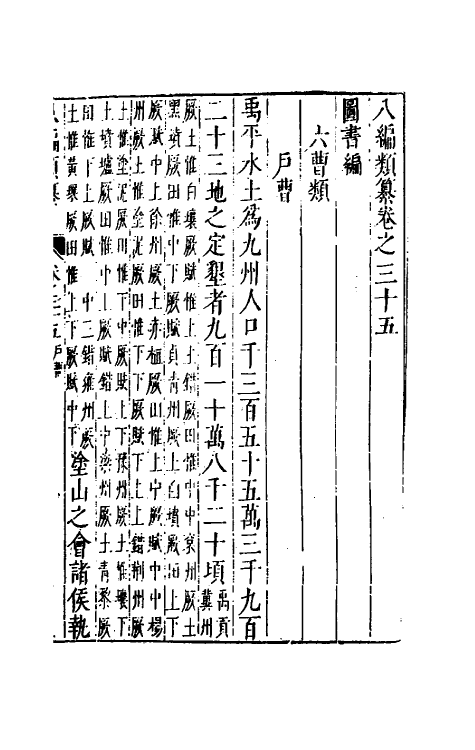 八編類纂卷之三十五
圖書編
六曹類
戶曹
禹平水土爲九州人口千三百五十五萬三千九百
二十三地之定墾者九百一十萬八千二十頃禹貢
冀州
厥土惟白壤厥賦惟上上錯厥田惟中中兗州厥土
黑墳厥田惟中下厥賦貞青州厥土白墳厥田上下
厥賦中上徐州厥土赤埴厥田惟上中厥賦中中楊
州厥土惟塗泥厥田惟下下厥賦下上上錯荊州厥
土惟塗泥厥田惟下中厥賦上下豫州厥土惟壤下
土墳壚厥田惟中上厥賦錯上中梁州厥土青黎厥
田惟下上厥賦中三錯雍州厥
土惟黃壤厥田惟上上厥賦中下
塗山之會諸侯執
八編類纂 卷之三十五戶曹